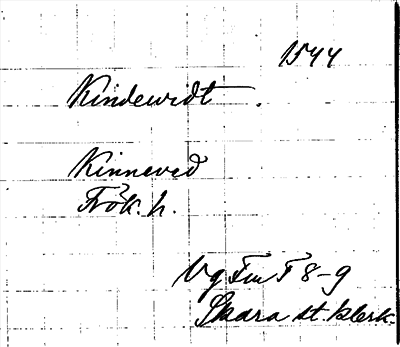 1544
Kindewidt.
Kinneved
Frök. h.
Vg Fm T 8-9
Skara st. klerk.